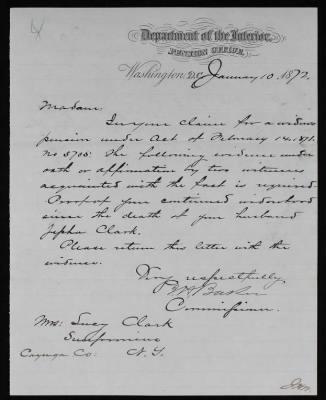 Department of the Interior,
PENSION OFFICE,
Washington, D.C. January 10, 1872.
Madam:
In your claim for a widows
pension under Act of February 14, 1871.
No 5705: the following evidence under
oath or affirmation by two witnesses
acquainted with the fact is required
Proof of your continued widowhood
since the death of your husband
Jepha Clark.
Please return this letter with the
evidence.
Very respectfully
Baker
Commissioner.
Mrs: Lucy Clark
Cayuga Co: N. Y.